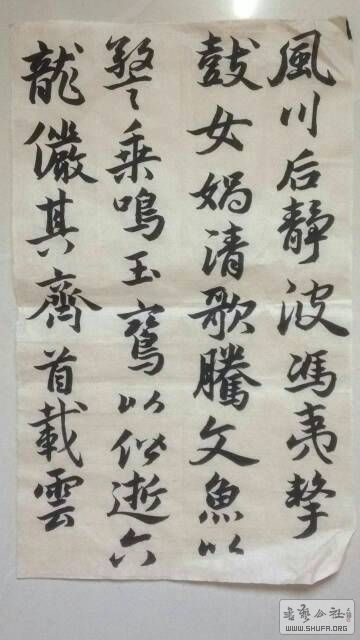 風川后靜波馮夷擊
鼓女媧清歌騰文魚以
警乘鳴玉鸞以偕逝六
龍儼其齊首載雲
公社
WWW.SHUFA.ORG